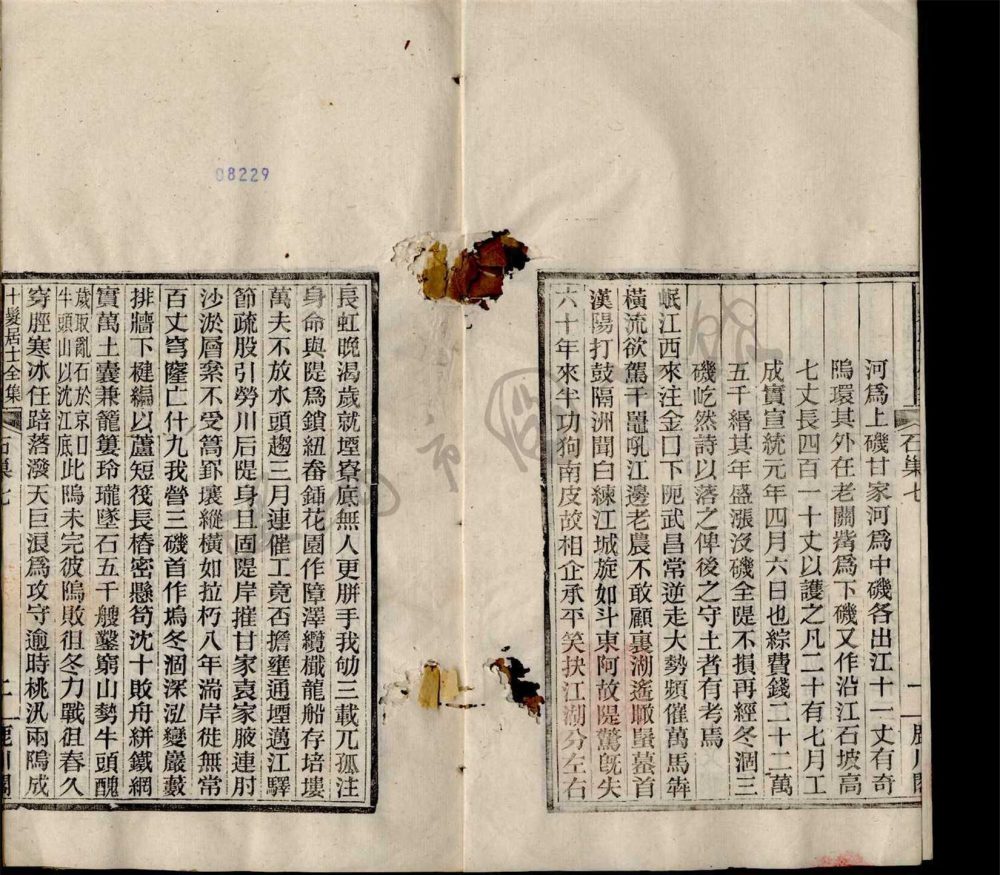 河爲上磯甘家河爲中磯各出江十一丈有奇
隖環其外在老關觜爲下磯又作沿江石坡高
七丈長四百一十丈以護之凡二十有七月工
成實宣統元年四月六日也綜費錢二十二萬
五千緡其年盛漲沒磯全隄不損再經冬涸三
磯屹然詩以落之俾後之守土者有考焉
岷江西來注金口下阨武昌常逆走大勢頻催萬馬犇
橫流欲駕千鼉吼江邊老農不敢顧裏湖遙瞰蜃蟇首
漢陽打鼓隔洲聞白練江城旋如斗東阿故隄驚旣失
六十年來半功狗南皮故相企承平笑抉江湖分左右
長虹晚渴歲就堙寮底無人更胼手我劬三載兀孤注
身命與隄爲鎖紐畚鍤花園作障澤纜檥龍船存培塿
萬夫不放水頭趨三月連催工竟否擔壅通堙邁江驛
節疏股引勞川后隄身且固隄岸摧甘家袁家腋連肘
沙淤層案不受篙郛壤縱橫如拉朽八年湍岸徙無常
百丈穹窿亡什九我營三磯首作塢冬涸深泓變嚴藪
排牆下楗編以蘆短筏長樁密懸笱沈十敗舟絣鐵網
實萬土囊兼籠簍玲瓏墜石五千艘鑿窮山勢牛頭醜
歲取亂石於京口
牛頭山以沈江底此隖未完彼隖敗徂冬力戰徂春久
穿脛寒冰任踣落潑天巨浪爲攻守逾時桃汛兩隖成
十髮居士全集
石巢七
二
鹿川閣
石巢七
一
鹿川閣
08229